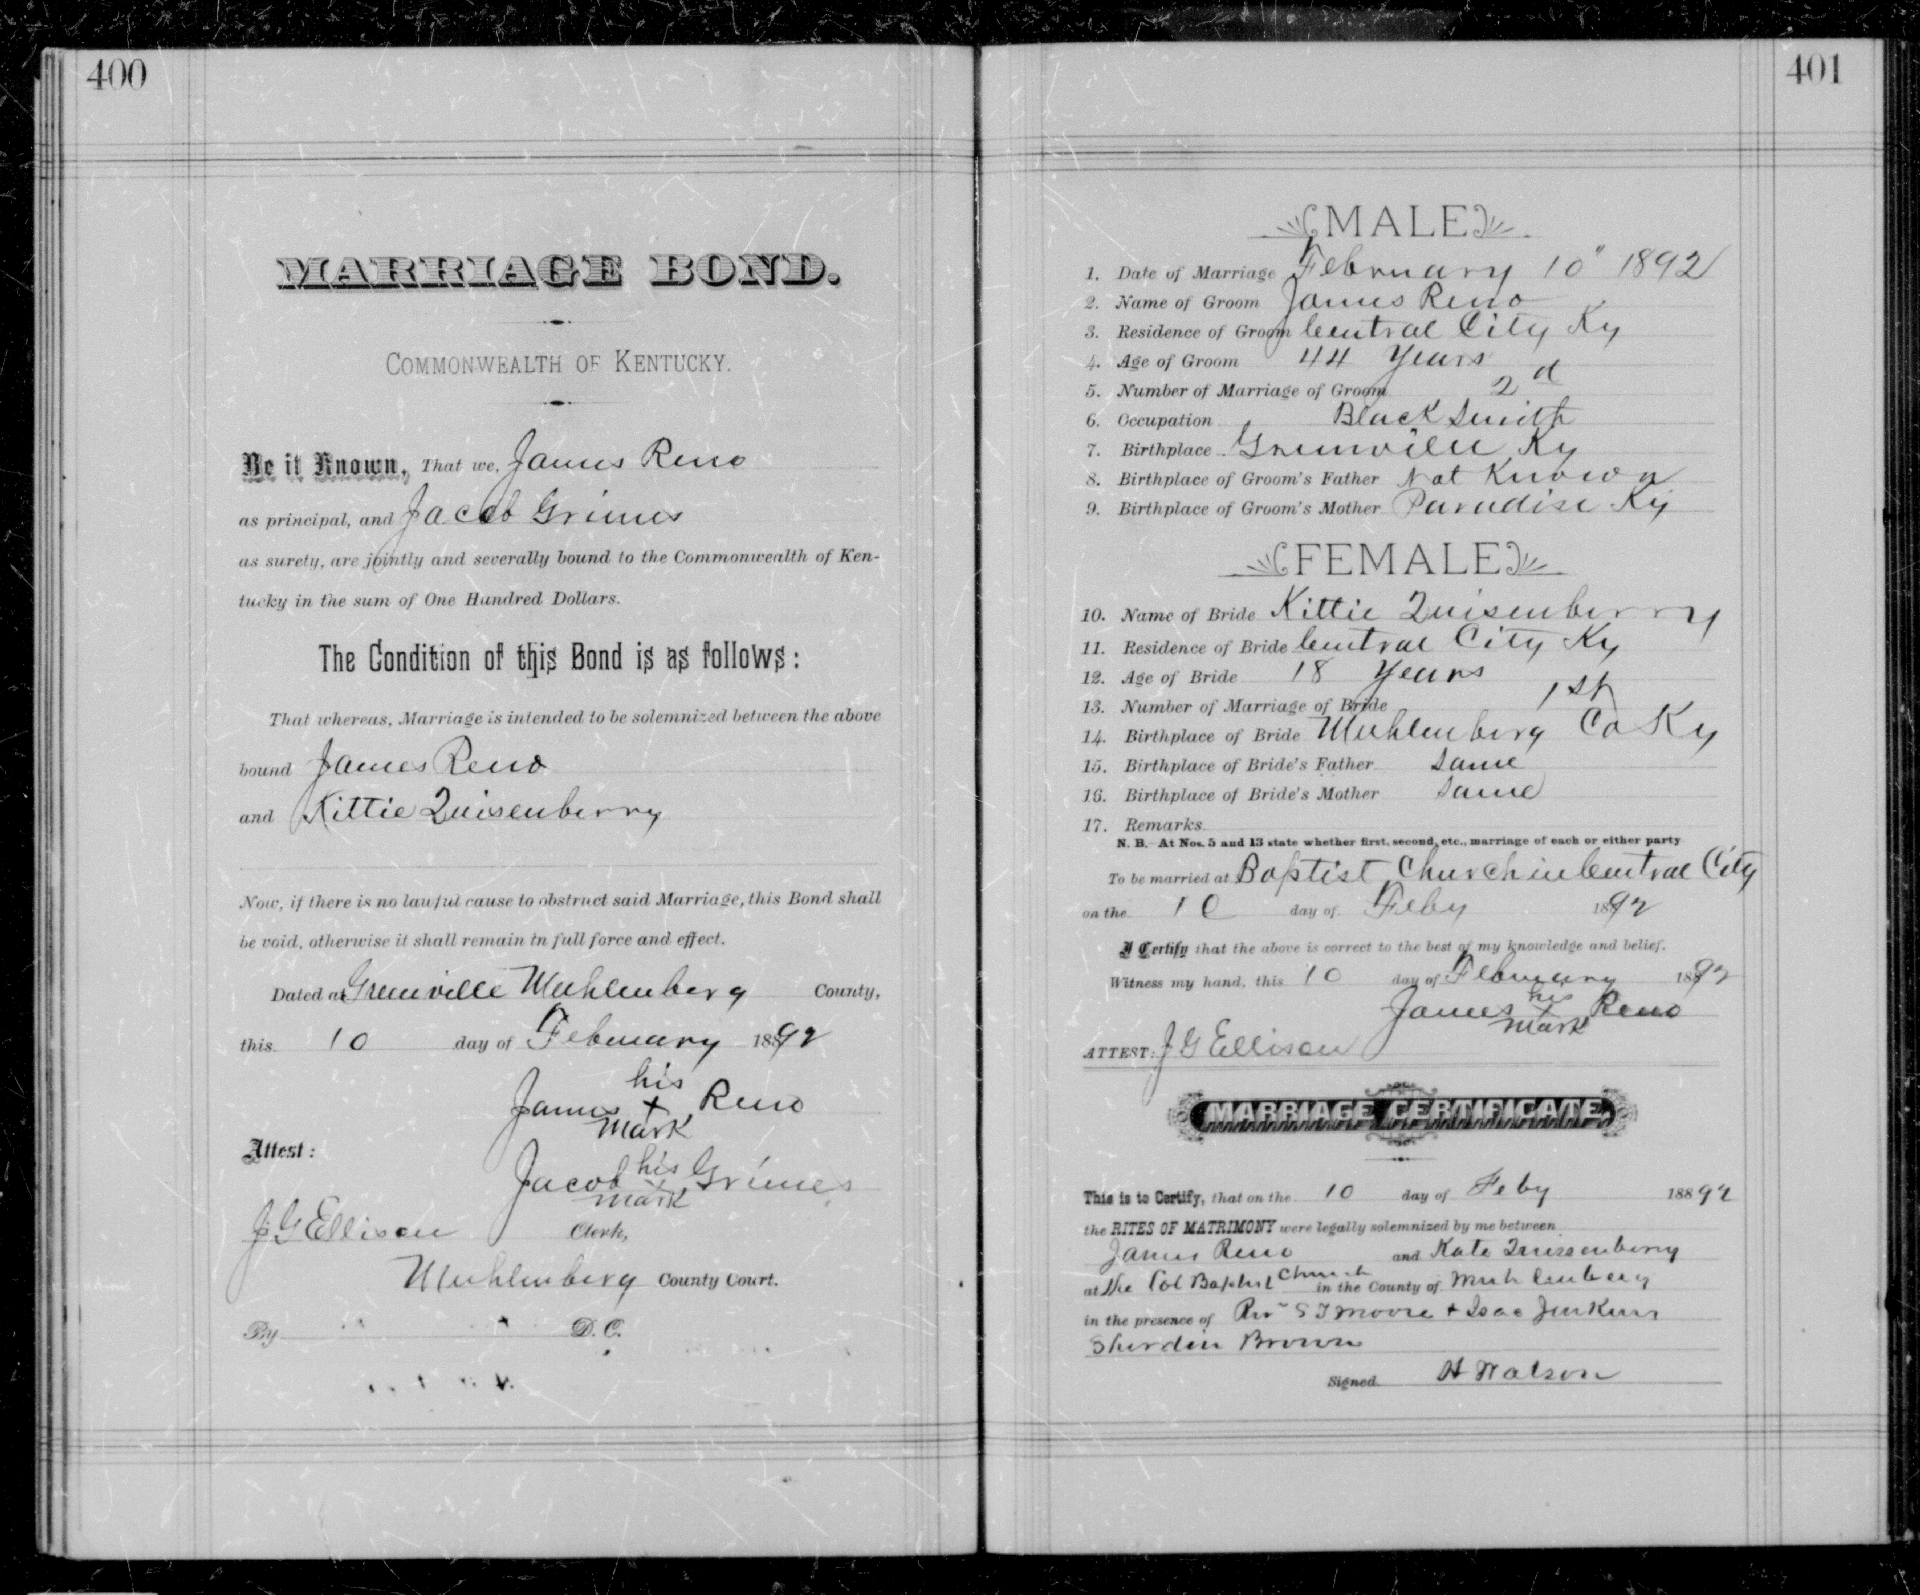 400
MARRIAGE BOND.
COMMONWEALTH OF KENTUCKY.
Be it Known, That we, James Reno
as principal, and Jacob Grimes
as surety, are jointly and severally bound to the Commonwealth of Ken-
tucky in the sum of One Hundred Dollars.
The Condition of this Bond is as follows:
That whereas, Marriage is intended to be solemnized between the above
bound James Reno
and Kittie Quisenberry
Now, if there is no lawful cause to obstruct said Marriage, this Bond shall
be void, otherwise it shall remain in full force and effect.
Dated at Greenville Muhlenberg County,
this 10 day of February 1892
James his Reno
x
mark
Attest:
Jacob his Grimes
x
mark
J G Ellison Clerk,
Muhlenberg County Court.
By D. C.
401
MALE
1. Date of Marriage February 10" 1892
2. Name of Groom James Reno
3. Residence of Groom Central City Ky
4. Age of Groom 44 Years
5. Number of Marriage of Groom 2d
6. Occupation Black Smith
7. Birthplace Greenville Ky
8. Birthplace of Groom's Father Not Known
9. Birthplace of Groom's Mother Paradise Ky
FEMALE
10. Name of Bride Kittie Quisenberry
11. Residence of Bride Central City Ky
12. Age of Bride 18 Years
13. Number of Marriage of Bride 1st
14. Birthplace of Bride Muhlenberg Co Ky
15. Birthplace of Bride's Father Same
16. Birthplace of Bride's Mother Same
17. Remarks
N. B. At Nos. 5 and 13 state whether first, second, etc., marriage of each or either party
To be married at Baptist Church in Central City
on the 10 day of Feby 1892
I Certify that the above is correct to the best of my knowledge and belief.
Witness my hand, this 10 day of February 1892
James his Reno
x
mark
ATTEST: J G Ellison
MARRIAGE CERTIFICATE.
This is to Certify, that on the 10 day of Feby 18892
the RITES OF MATRIMONY were legally solemnized by me between
James Reno and Kate Quisenberry
at the Col Baptist Church in the County of Muhlenberg
in the presence of Rev S T Moore + Isac Jenkins
Sherdin Brown
Signed H Watson